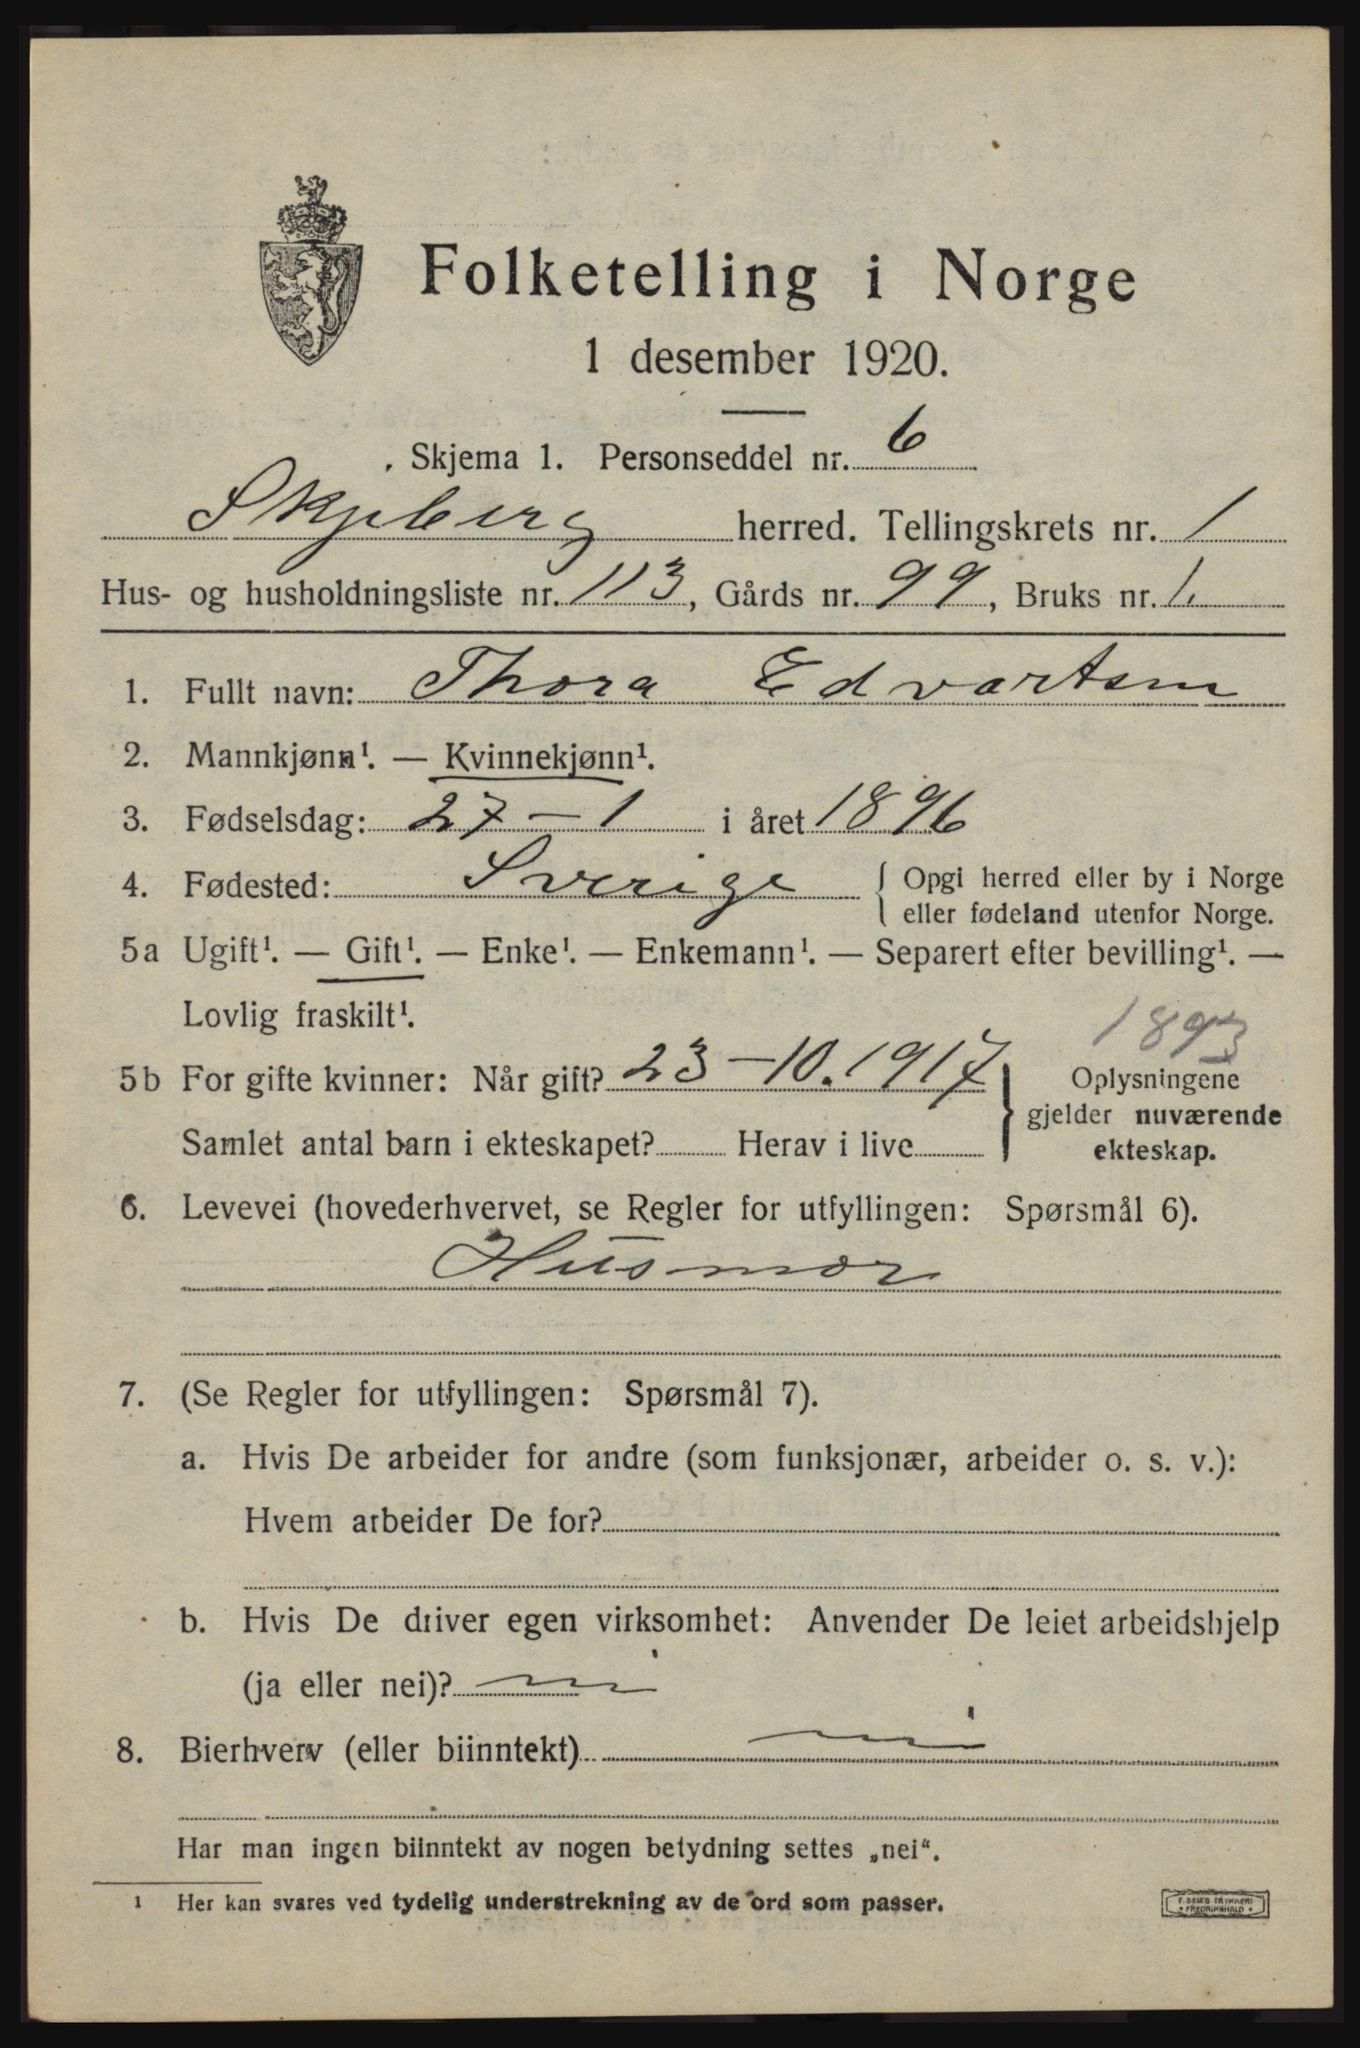 Folketelling i Norge
1 desember 1920.
Skjema 1. Personseddel nr. 6
Skjeberg herred. Tellingskrets nr. 1
Hus- og husholdningsliste nr. 113, Gårds nr. 99, Bruks nr. 1.
1. Fullt navn: Thora Edvartsen
2. Mannkjønn¹. — Kvinnekjønn¹.
3. Fødselsdag: 27 – 1 i året 1896
4. Fødested: Sverige { Opgi herred eller by i Norge
eller fødeland utenfor Norge.
5a Ugift¹. — Gift¹. — Enke¹. — Enkemann¹. — Separert efter bevilling¹. —
Lovlig fraskilt¹.
1893
5b For gifte kvinner: Når gift? 23 – 10. 1917 } Oplysningene
gjelder nuværende
Samlet antal barn i ekteskapet? Herav i live ekteskap.
6. Levevei (hovederhvervet, se Regler for utfyllingen: Spørsmål 6).
Husmor
7. (Se Regler for utfyllingen: Spørsmål 7).
a. Hvis De arbeider for andre (som funksjonær, arbeider o. s. v.):
Hvem arbeider De for?
b. Hvis De driver egen virksomhet: Anvender De leiet arbeidshjelp
(ja eller nei)? nei
8. Bierhverv (eller biinntekt) nei
Har man ingen biinntekt av nogen betydning settes „nei“.
¹ Her kan svares ved tydelig understrekning av de ord som passer.
E. SEM'S TRYKKERI
• FREDRIKSHALD •